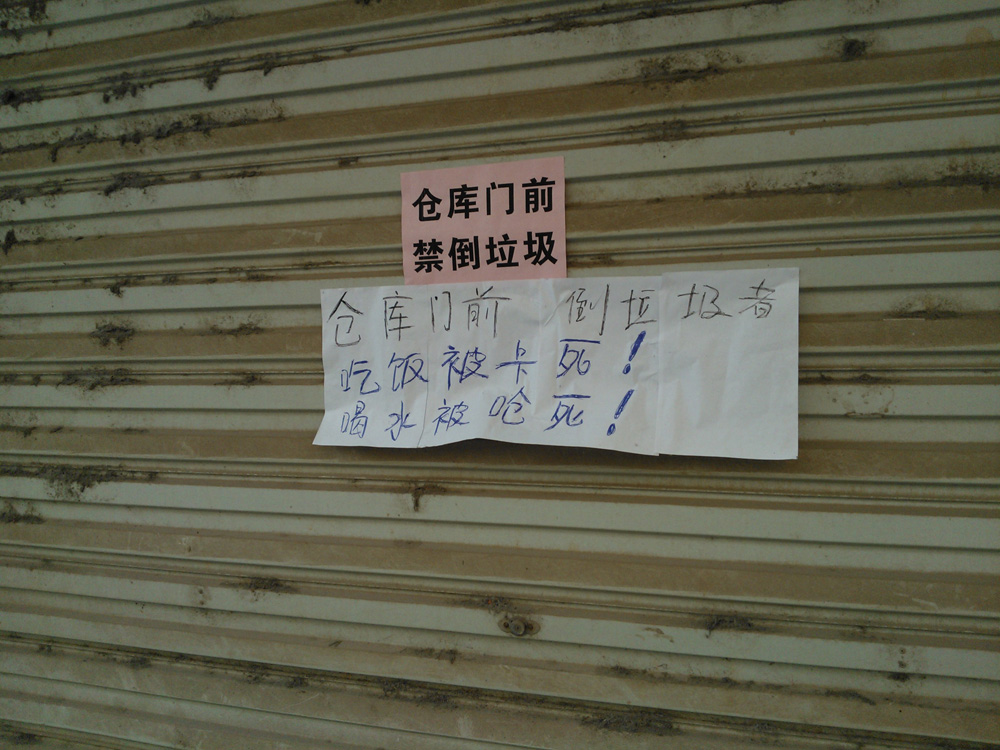 仓库门前
禁倒垃圾
仓库门前 倒垃圾者
吃饭被卡死！
喝水被呛死！